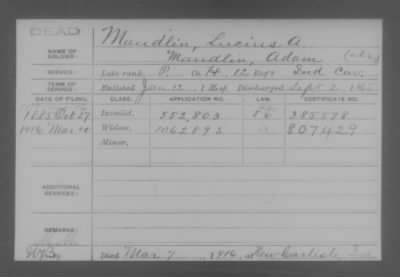 DEAD
NAME OF SOLDIER: Maudlin, Lucius A.
Maudlin, Adam (alias)
SERVICE: Late rank, P. Co. H, 12 Reg't Ind Cav.
TERM OF SERVICE: Enlisted Jan 12, 1864 Discharged Sept 2, 1865
DATE OF FILING. CLASS. APPLICATION NO. LAW. CERTIFICATE NO.
1885 Oct 27 Invalid, 552,803 385578
1916 Mar 20 Widow, 1062895 807429
Minor,
ADDITIONAL SERVICES:
REMARKS:
Died Mar 7, 1916, at New Carlisle, Ind